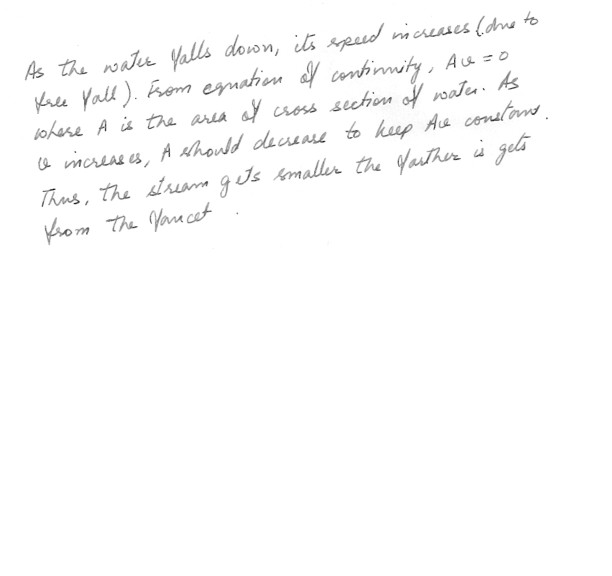 As the water falls down, its speed increases (due to
free fall). From equation of continuity, Av = 0
where A is the area of cross section of water. As
v increases, A should decrease to keep Av constant.
Thus, the stream gets smaller the farther is gets
from the faucet.